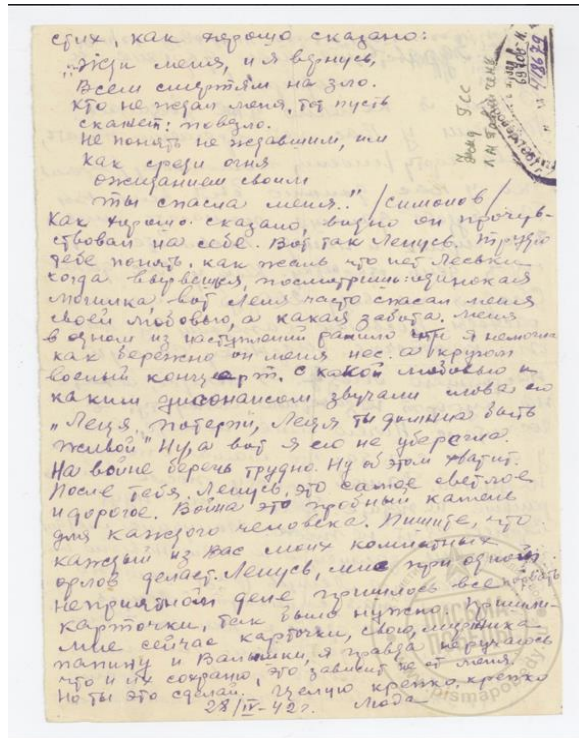 стих, как хорошо сказано:
"Жди меня, и я вернусь,
Всем смертям на зло.
Кто не ждал меня, тот пусть
скажет: повезло.
не понять не ждавшим, им
как среди огня
ожиданием своим
ты спасла меня.." /Симонов/
Как хорошо сказано, видно он прочув-
ствовал на себе. Вот так Ленусь. Трудно
тебе понять, как жаль что нет Леськи
когда вырвешься, посмотришь одинокая
могилка, вот Леня часто спасал меня
своей любовью, а какая забота. Меня
в одном из наступлений ранило я немогла
как бережно он меня нес. а кругом
военый концерт. с какой любовью и
каким дисонансом звучали слова его
"Леця, потерпи, Леця ты должна быть
живой" Ну, а вот я его не уберегла.
На войне беречь трудно. Ну об этом хватит.
После тебя, Ленусь, это самое светлое
и дорогое. Война это пробный камень
для каждого человека. Пишите, что
каждый из Вас моих комнатных
орлов делает. Ленусь, мне при одном
неприятном деле пришлось все порвать
карточки, так было нужно. Пришли
мне сейчас карточки, свою,
папину и Валюшки, я правда неручаюсь
что и их сохраню, это зависит не от меня.
Но ты это сделай. Целую крепко, крепко
28/IV-42г. Люда
Фонд ГСС
Л.М. Павличенко
ПИСЬМА
ПОБЕДЫ
pismapobedy